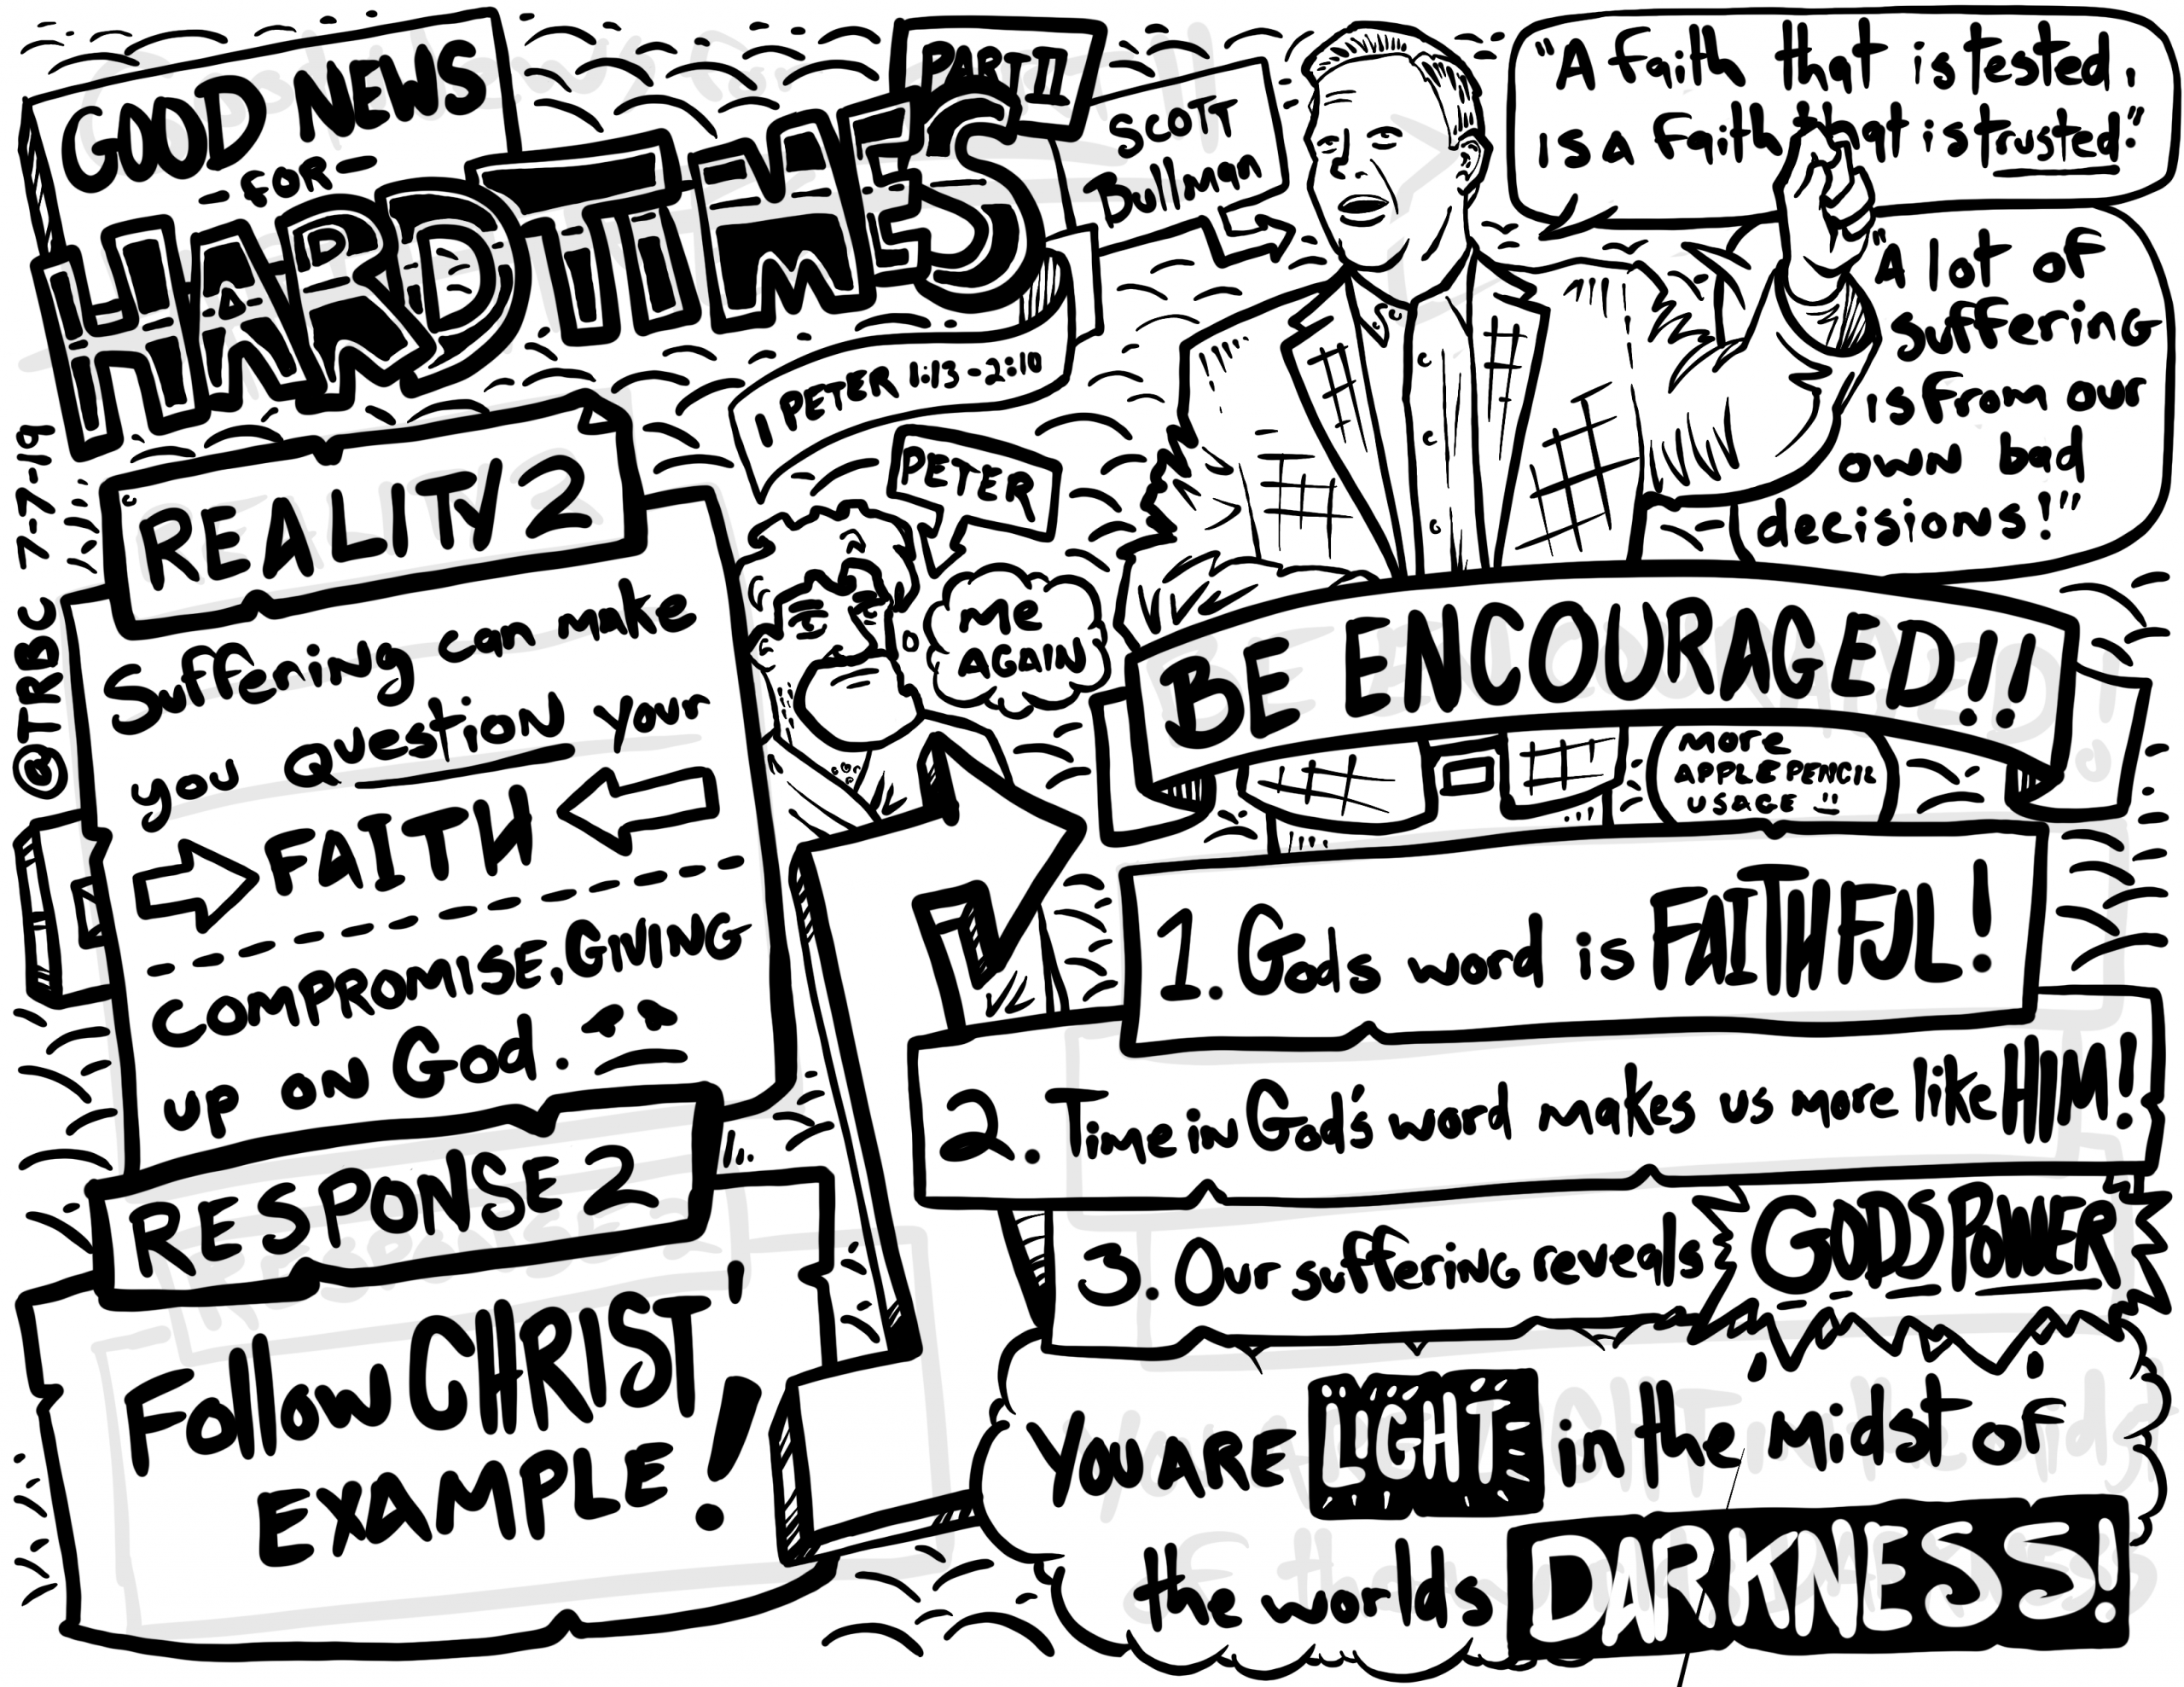 GOOD NEWS
-FOR-
HARD TIMES
PART II
SCOTT
Bullman
"A faith that is tested,
is a faith that is trusted."
"A lot of
suffering
is from our
own bad
decisions!"
1 PETER 1:13-2:10
@TRBC 7-7-19
REALITY 2
Suffering can make
you question your
FAITH
COMPROMISE, GIVING
up on God.
RESPONSE 2
Follow CHRIST'
EXAMPLE!
PETER
Me
AGAIN
BE ENCOURAGED!!
More
APPLE PENCIL
USAGE
1. Gods word is FAITHFUL!
2. Time in God's word makes us more like HIM!
3. Our suffering reveals GODS POWER
YOU ARE LIGHT in the midst of
the worlds DARKNESS!